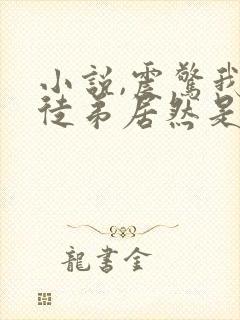 小說,震驚我
徒弟居然是
龍書金